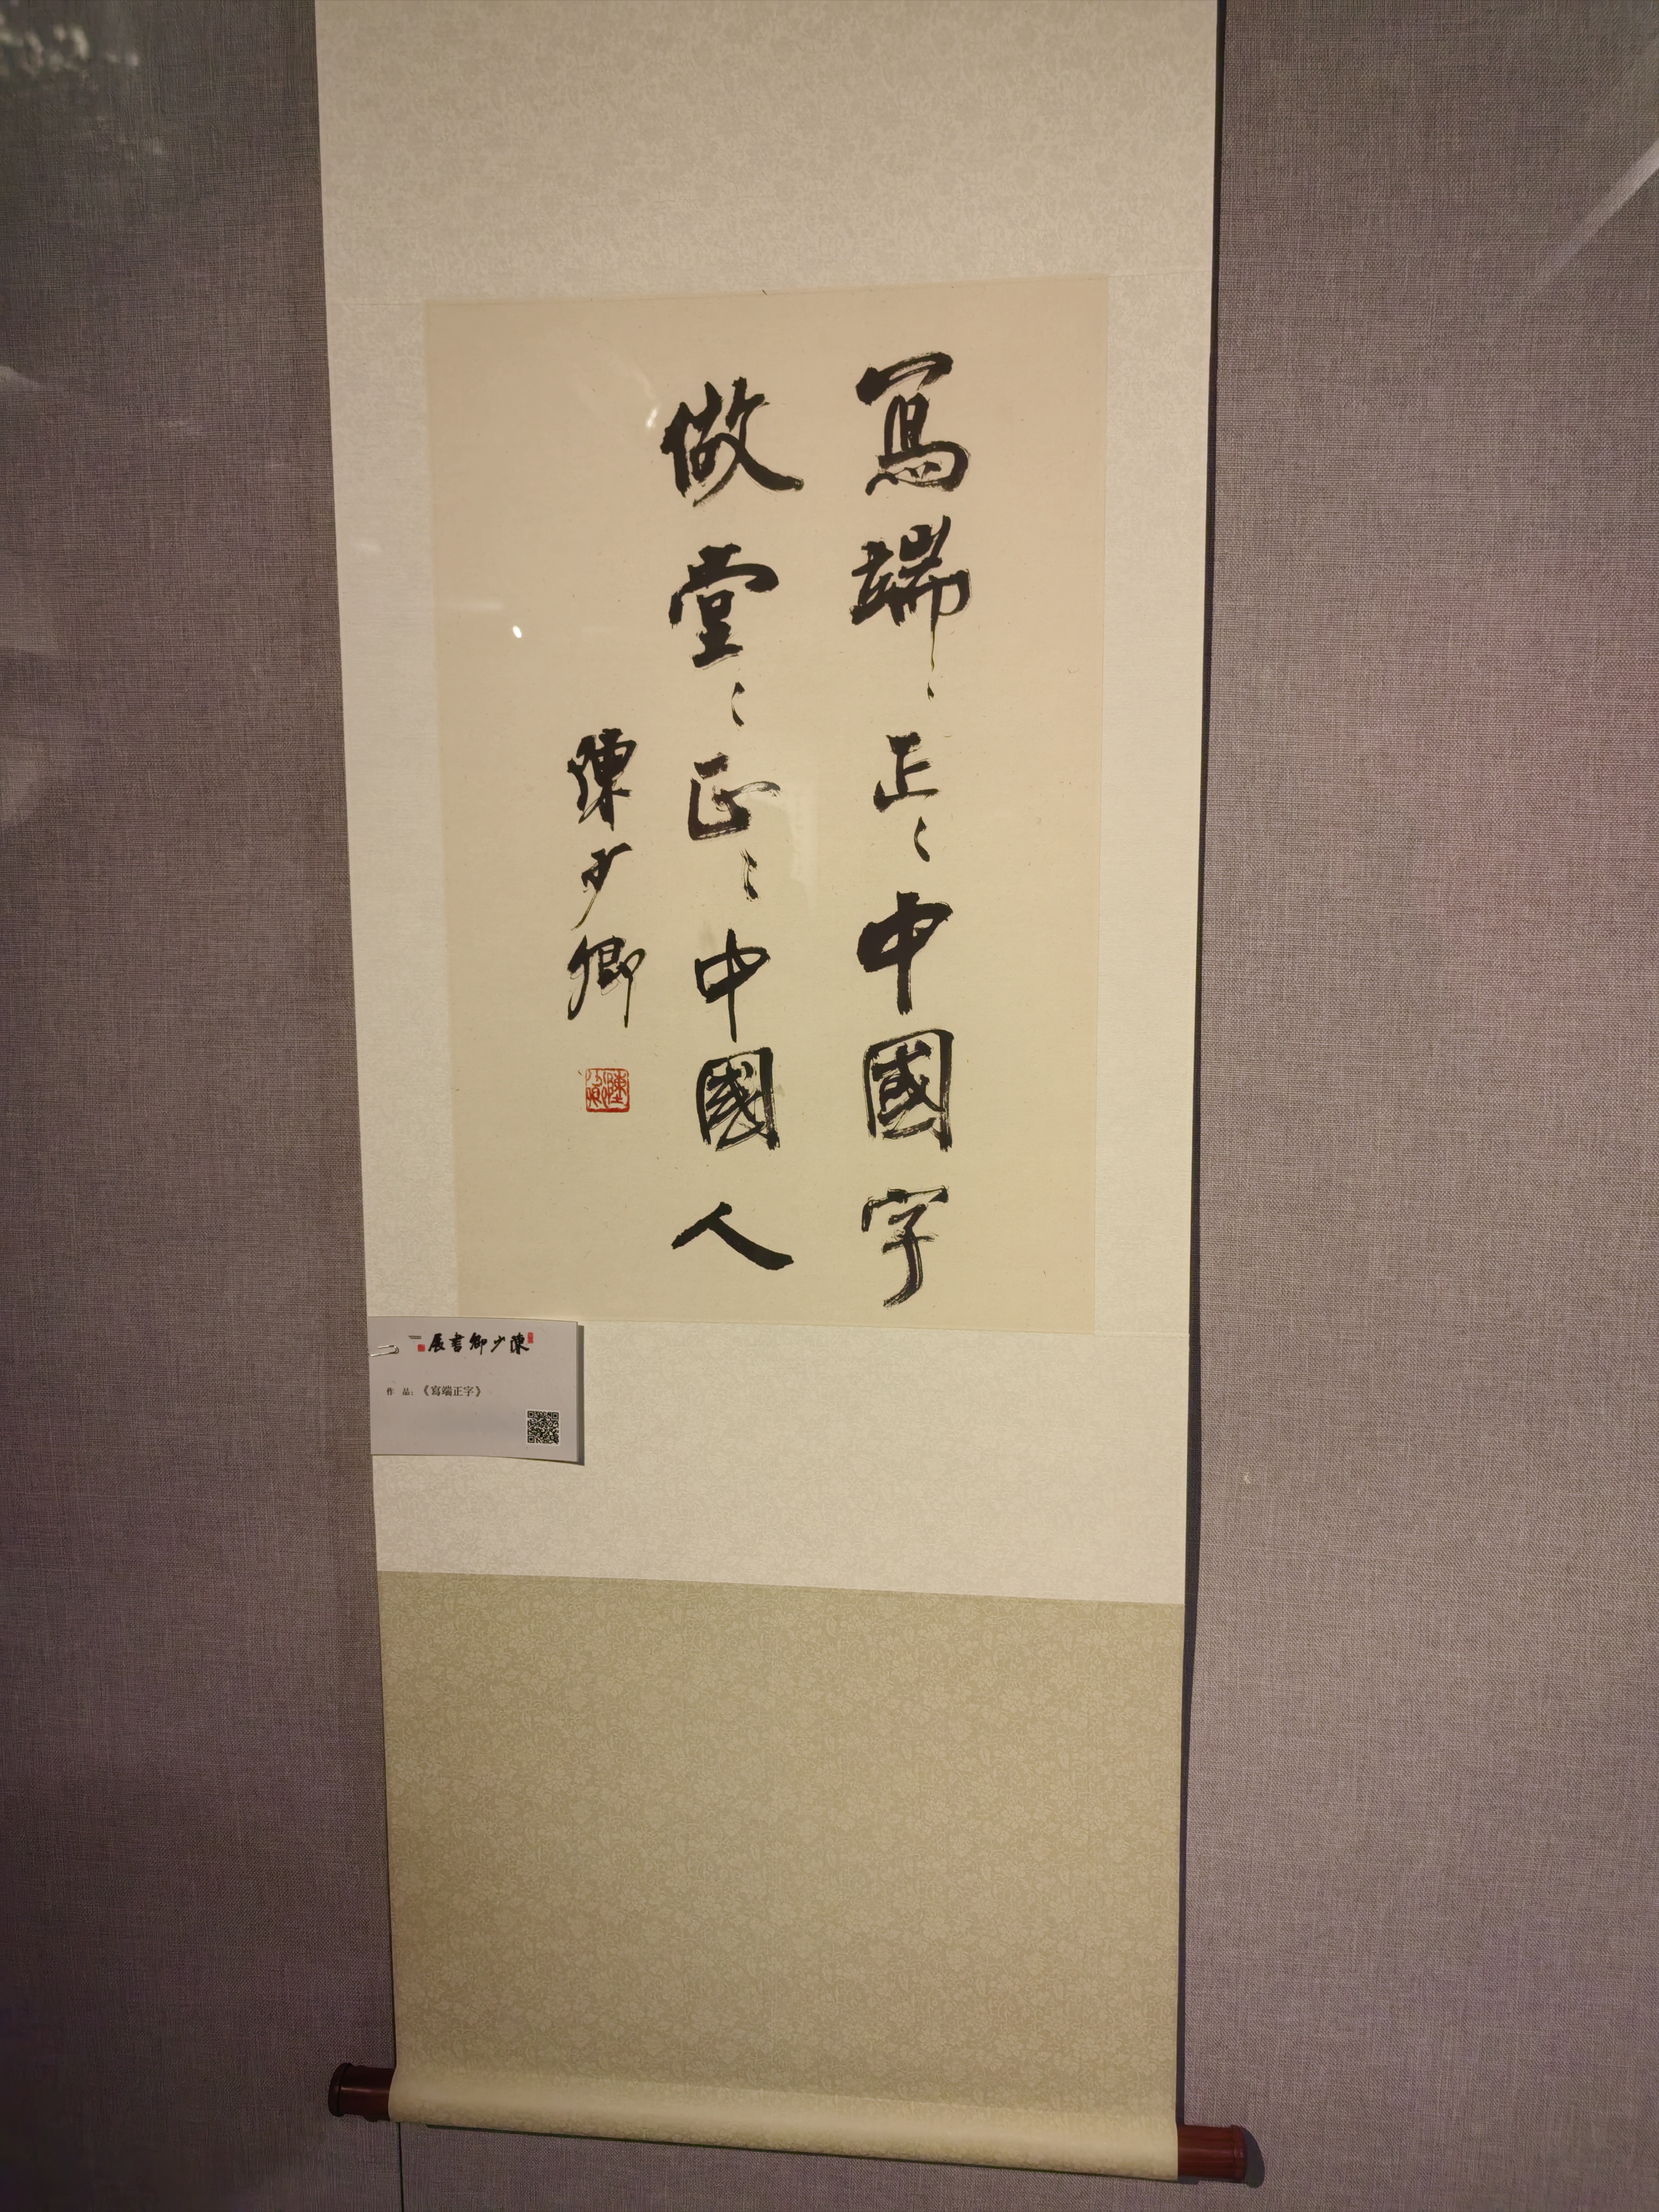 寫端〻正〻中國字
做堂〻正〻中國人
陳少卿
陳少卿書展
作 品:《寫端正字》